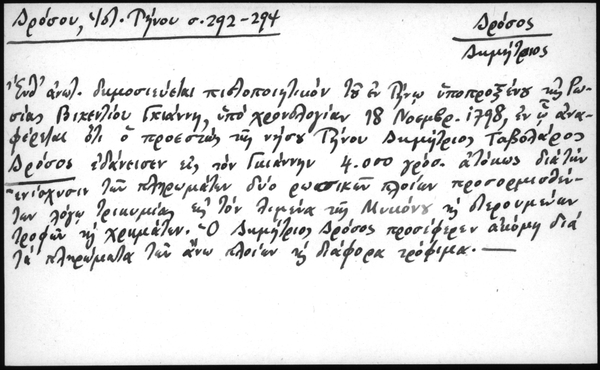 Δρόσου, Ἱστ. Τήνου σ. 292-294
Δρόσος
Δημήτριος
Ἔνθ' ἀνωτ. δημοσιεύεται πιστοποιητικὸν τοῦ ἐν Τήνῳ ὑποπροξένου τῆς Ρωσ-
σίας Βικεντίου Γκιάννη, ὑπὸ χρονολογίαν 18 Νοεμβρ. 1798, ἐν ᾧ ἀνα-
φέρεται ὅτι ὁ προεστὼς τῆς νήσου Τήνου Δημήτριος Ταβολάρος
Δρόσος ἐδάνεισεν εἰς τὸν Γκιάννην 4.000 γρόσ. ἀτόκως διὰ τὴν
ἐνίσχυσιν τῶν πληρωμάτων δύο ρωσσικῶν πλοίων προσορμισθέν-
των λόγῳ τρικυμίας εἰς τὸν λιμένα τῆς Μυκόνου κ στερουμένων
τροφῶν κ χρημάτων. Ὁ Δημήτριος Δρόσος προσέφερεν ἀκόμη διὰ
τὰ πληρώματα τῶν ἄνω πλοίων κ διάφορα τρόφιμα.—